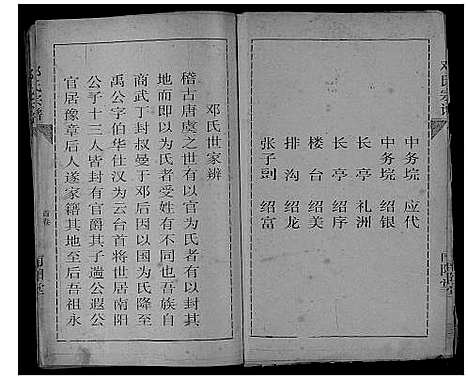 中务垸 应代
中务垸 绍银
长亭 礼洲
长亭 绍序
楼台 绍美
排沟 绍龙
张子剅 绍富
邓氏世家辨
稽古唐虞之世有以官为氏者有以封其
地而即以为氏者受姓有不同也吾族自
商武丁封叔曼于邓后因以国为氏降至
禹公字伯华仕汉为云台首将世居南阳
公子十三人皆封有官爵其子遄公遐公
官居豫章后人遂家籍其地至后吾祖永
首卷